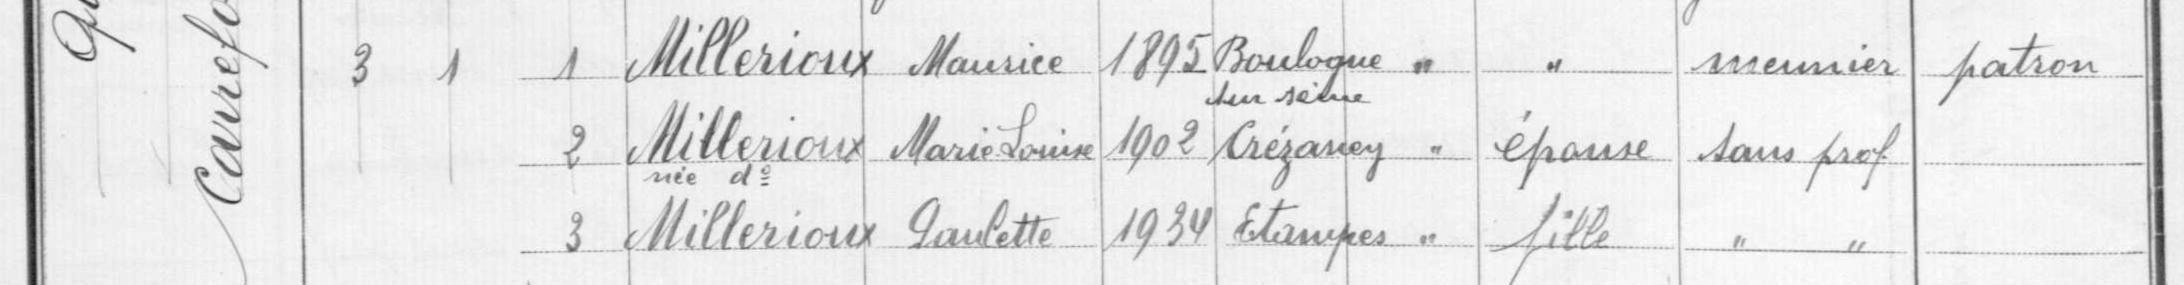 Carrefo
3 1 1 Millerioux Maurice 1895 Boulogne " " meunier patron
sur seine
2 Millerioux Marie Louise 1902 Crézancy " épouse sans prof
née do
3 Millerioux Paulette 1934 Etampes " fille " "